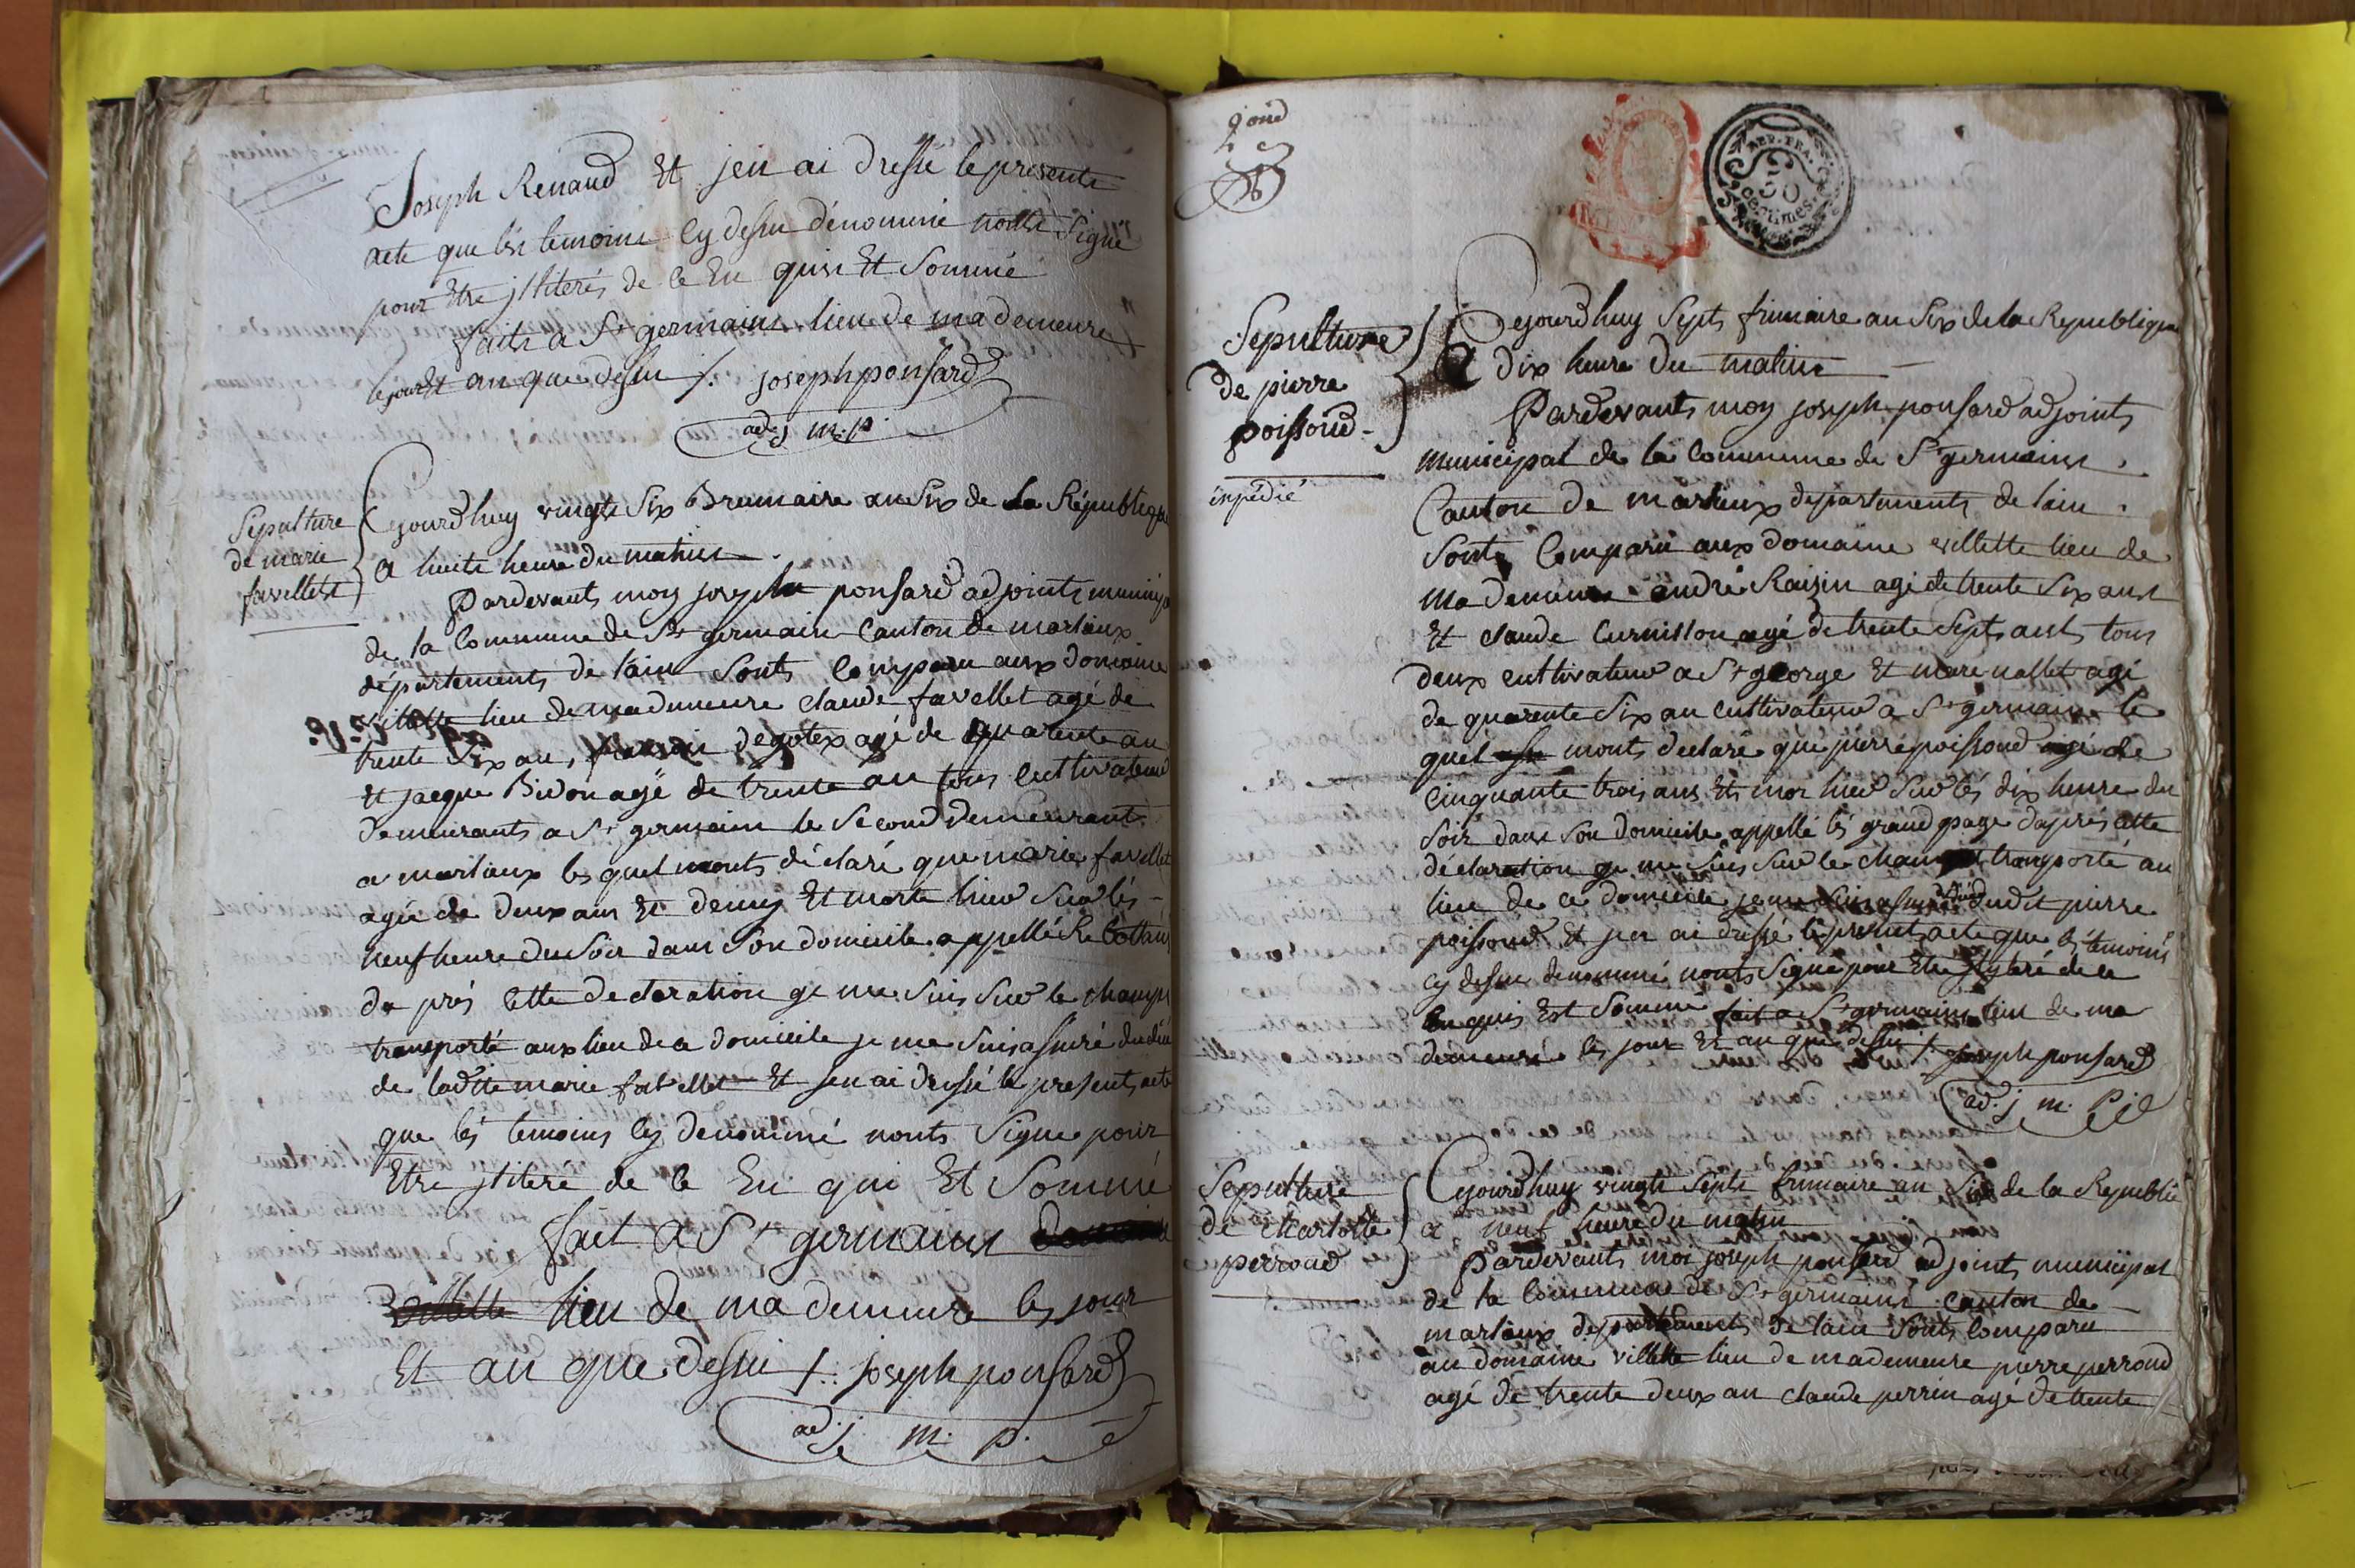 Joseph Renaud Et jen ai dressé le presente
acte que les temoins cy dessu dénommé nonts Signé
pour Etre jlliterés de ce En quis Et Sommé
faits a St germains lieu de ma demeure
le jour Et an que dessu /. joseph ponsard
adj m. p.
Sepulture
de marie
favellet
Cejourdhuy vingts Six Brumaire an Six de la République
a huits heure du matins
Pardevants moy joseph ponsard adjoints
de la Commune de St germain Canton de marlieux
départements de lain Sonts Comparu aux domaine
villette lieu de ma demeure claude favellet agé de
trente Six an, degotex agé de quarente an
Et jacque agé de trente an tous cultivateur
demeurants a St germain le Second demeurant
a marlieux les quel monts déclaré que marie favellet
agée de deux ans Et demy Et morte hier Sur lés
neuf heure du Soir dans Son domicile appellé
da prés Cette declaration ge me Suis Sur le champs
transporté aux lieu de ce domicile je me Suis assuré du dé
de ladite marie favellet Et jen ai dressé le present acte
que lés temoins cy denommé nonts Signe pour
Etre jliteré de ce En qui Et Sommé
fait a St germains
lieu de ma demeure les jour
Et an que dessu /. joseph ponsard
adj m. p.
Sepulture
de pierre
poissoud
expédié
REP. FRA.
50
centimes
Cejourdhuy Septs frimaire an Six de la Republique
a dix heure du matins
Pardevants moy joseph ponsard adjoints
municipal de la Commune de St germains
Canton de marlieux departements de lain
Sonts Comparu aux domaine villette lieu de
ma demeure andré Raizin agé de trente Six ans
Et claude Curnillon agé de trente Septs ants tous
deux cultivateur a St george Et marc nallet agé
de quarente Six an cultivateur a St germain le
quel monts declaré que pierre poissoud agé de
Cinquante trois ans Et mor hier Sur lés dix heure du
Soir dans Son domicile appellé lés grand page daprés cette
déclaration ge me Suis Sur le champs transporté au
lieu de ce domicile je me Suis assuré du dit pierre
poissoud Et jen ai dressé le present acte que lés temoins
cy dessu denommé nonts Signé pour Etre jlyteré de ce
En quis Est Sommé fait a St germains lieu de ma
demeure les jour Et an que dessu /. joseph ponsard
adj m. p.
Sepulture
de Charlotte
perroud
Cejourdhuy vingts Septs frimaire an Six de la Republi
a neuf heure du matin
Pardevants moi joseph ponsard adjoints municipal
de la Commune de St germains canton de
marlieux departements de lain Sonts Comparu
au domaine villette lieu de ma demeure pierre perroud
agé de trente deux an claude perrin agé de trente